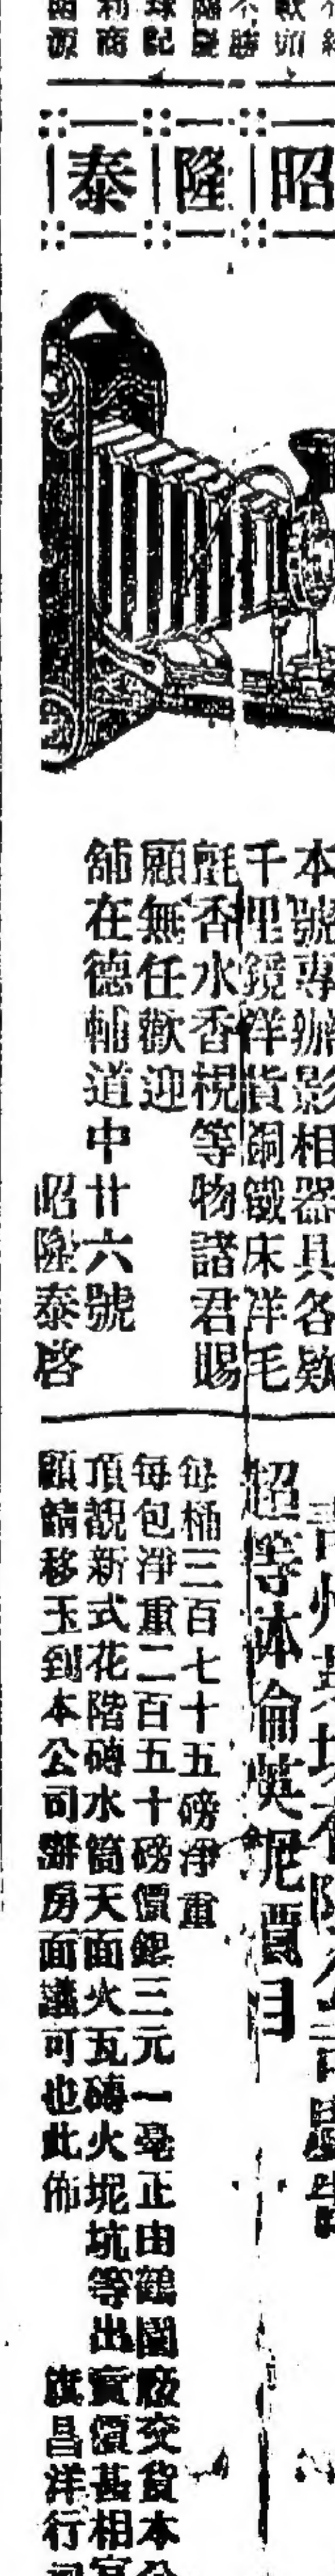 昭隆泰
本號專辦影相器具各欵
千里鏡洋貨銅鐵床洋毛
氈香水香梘等物諸君賜
顧無任歡迎
舖在德輔道中廿六號
昭隆泰啓
超等砵倫英坭價目
每桶三百七十五磅淨重
每包淨重二百五十磅價銀三元一毫正由鶴園廠交貨本
頂靚新式花階磚水筒天面火瓦磚火坭坑等出賣價甚相宜
顧請移玉到本公司辦房面議可也此佈
旗昌洋行